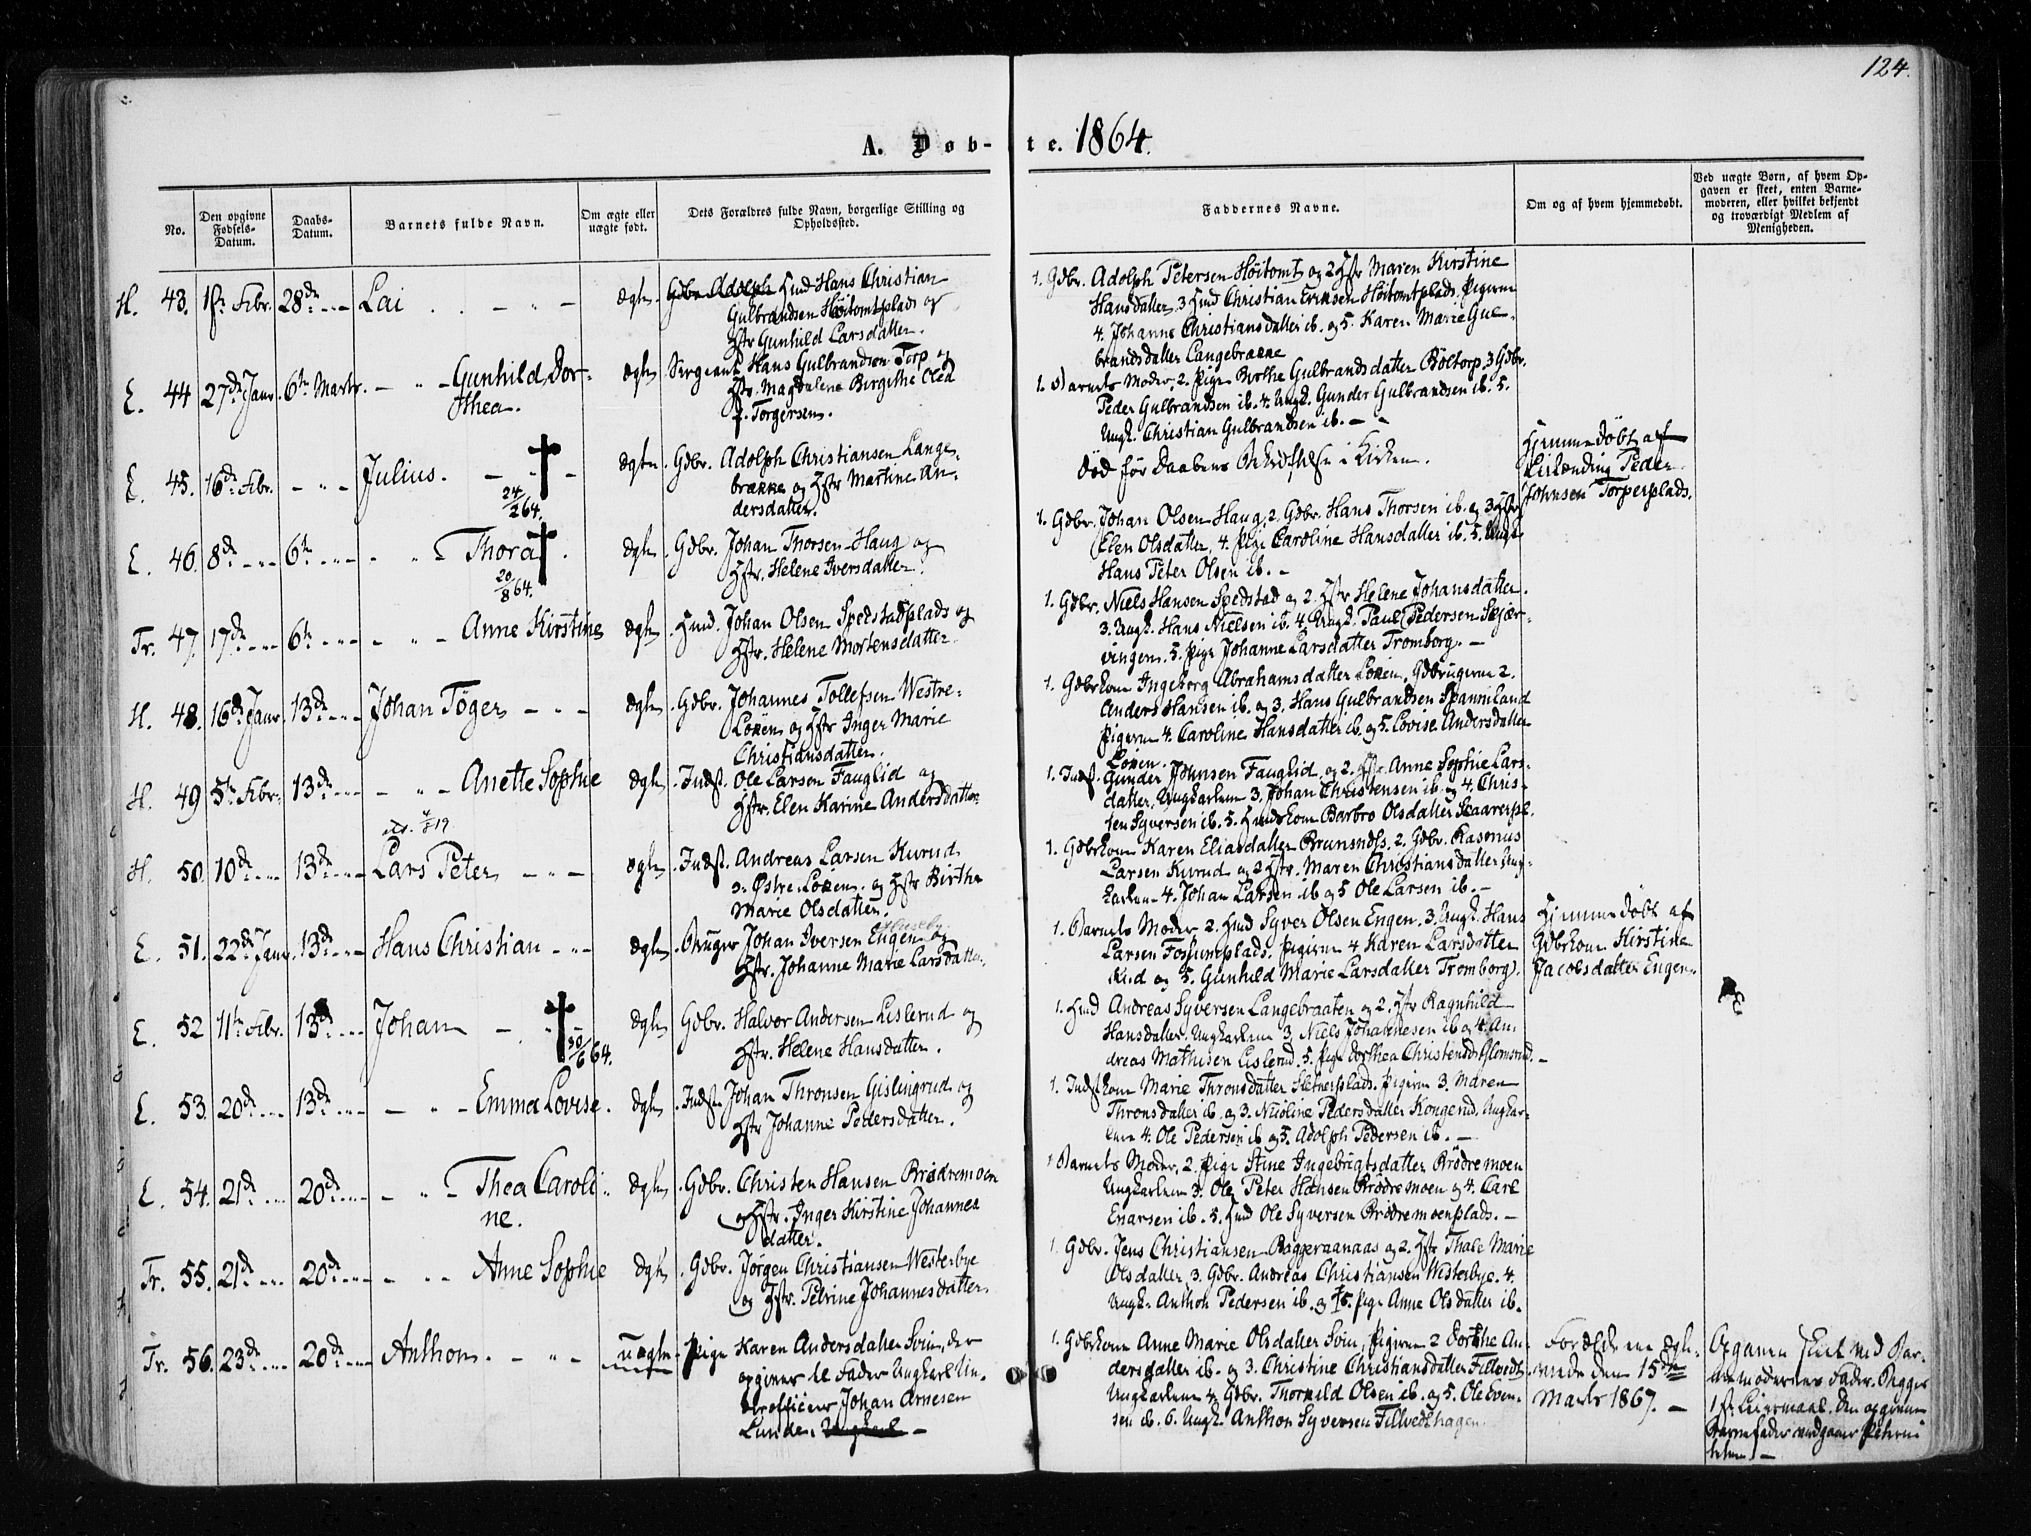 124.
A. Døb-te. 1864.
No.
Den opgivne Fødsels-Datum.
Daabs-Datum.
Barnets fulde Navn.
Om ægte eller uægte født.
Dets Forældres fulde Navn, borgerlige Stilling og Opholdssted.
Faddernes Navne.
Om og af hvem hjemmedøbt.
Ved uægte Børn, af hvem Op-
gaven er skeet, enten Barne-
moderen, eller hvilket bekjendt
og troværdigt Medlem af
Menigheden.
H. 43. 1st Febr. 28de Lai ægte Gdbr. Adolph Hmd Hans Christian
Gulbrandsen Høitomtplads og
Hstr Gunhild Larsdatter.
1. Gdbr. Adolph Petersen Høitomt og 2 Hstr Maren Kirstine
Hansdatter 3 Hmd Christian Eriksen Høitomtplads. Pigerne
4. Johanne Christiansdatter ib. og 5. Karen Marie Gul-
brandsdatter Langebrække
E. 44 27de Janr. 6te Marts. Gunhild Dor-
thea.
ægte Sergeant Hans Gulbrandsen Torp og
Hstr. Magdalena Birgithe Oled
f. Torgersen.
1. Barnets Moder, 2. Pige Berthe Gulbrandsdatter Bøltorp, 3 Gdbr.
Peder Gulbrandsen ib. 4. Ungk. Gunder Gulbrandsen ib. 5.
Ungk. Christian Gulbrandsen ib.
E. 45. 16de Febr. Julius. 24/2 64.
ægte Gdbr. Adolph Christiansen Lange-
brække og Hstr Martine An-
dersdatter.
død før Daabens Bekræftelse i Kirken.
Hjemmedøbt af
Leilænding Peder
Johnsen Torperplads.
E. 46. 8de 6te Thora. 20/8 64.
ægte Gdbr. Johan Thorsen Haug og
Hstr. Helene Iversdatter.
1. Gdbr. Johan Olsen Haug, 2. Gdbr. Hans Thorsen ib. og 3 Hstr
Elen Olsdatter, 4. Pige Caroline Hansdatter ib. 5. Ungk.
Hans Peter Olsen ib.
Tr. 47. 17de 6te Anne Kirstine
ægte Hmd. Johan Olsen Spedstadplads og
Hstr. Helene Mortensdatter.
1. Gdbr. Niels Hansen Spedstad og 2. Hstr Helene Johansdatter.
3. Ungk. Hans Nielsen ib. 4. Ungk. Paul Pedersen Skjær-
vingen. 5. Pige Johanne Larsdatter Tromborg.
H. 48. 16de Janr. 13de Johan Tøger
ægte Gdbr. Johannes Tollefsen Westre-
Løken og Hstr Inger Marie
Christiansdatter.
1. Gdbrkone Ingeborg Abrahamsdatter Løken, Gdbrugerne 2.
Anders Hansen ib. og 3. Hans Gulbrandsen Spanniland
Pigerne 4. Caroline Hansdatter ib. og 5. Lovise Andersdatter
Løken.
H. 49 5te Febr. 13de Anette Sophie
ægte Indst. Ole Larsen Fauglid og
Hstr. Elen Karine Andersdatter.
1. Indst. Gunder Johnsen Fauglid og 2. Hstr. Anne Sophie Lars-
datter, Ungkarlene 3. Johan Christensen ib. og 4. Chris-
ten Syversen ib. 5. Hmdskone Barbro Olsdatter Skaarerpl.
H. 50. 10de 13de Lars Peter
ægte Indst. Andreas Larsen Kurud
Østre Løken og Hstr Birthe
Marie Olsdatter.
1. Gdbrkone Karen Eliasdatter 2. Gdbr. Rasmus
Larsen Kurud og 3 Hstr. Maren Christiansdatter Ung-
karlene 4. Johan Larsen ib og 5 Ole Larsen ib.
E. 51. 22de Janr. 13de Hans Christian
ægte Bruger Johan Iversen Engen og
Hstr. Johanne Marie Larsdatter.
1. Barnets Moder 2. Hmd Syver Olsen Engen. 3. Ungk. Hans
Larsen Fossumplads. Pigerne 4 Karen Larsdatter
og 5. Gunhild Marie Larsdatter Tromborg.
Hjemmedøbt af
Gdbrkone Kirstine
Jacobsdatter Engen.
E. 52 11te Febr. 13de Johan 30/6 64.
ægte Gdbr. Halvor Andersen Lislerud og
Hstr. Helene Hansdatter.
1. Hmd Andreas Syversen Langebraaten og 2. Hstr Ragnhild
Hansdatter. Ungkarlene 3. Niels Johannesen ib og 4. An-
dreas Mathisen Lislerud. 5. Pige Dorthea Christensdt
E. 53. 20de 13de Emma Lovise.
ægte Indst. Johan Thronsen Gislingrud og
Hstr Johanne Pedersdatter.
1. Indstkone Marie Thronsdatter Sletnerplads. Pigerne 3. Maren
Thronsdatter ib. og 3. Nicoline Pedersdatter Kongerud. Ungkar-
lene 4. Ole Pedersen ib og 5. Adolph Pedersen ib.
E. 54. 21de 20de Thea Caroli-
ne.
ægte Gdbr. Christen Hansen Brødremoen
og Hstr. Inger Kirstine Johannes
datter.
1 Barnets Moder, 2. Pige Stine Ingebrigtsdatter Brødremoen
Ungkarlene 3. Ole Peter Hansen Brødremoen og 4. Carl
Enarsen ib. 5. Hmd Ole Syversen Brødremoenplads.
Tr. 55. 21de 20de Anne Sophie
ægte Gdbr. Jørgen Christiansen Westerbye
og Hstr. Petrine Johannesdatter.
1. Gdbr. Jens Christiansen Baggeraanaas og 2. Hstr Thale Marie
Olsdatter, 3. Gdbr. Andreas Christiansen Westerbye. 4.
Ungk. Anthon Pedersen ib. og 5. Pige Anne Olsdatter ib.
Tr. 56. 23de 20de Anthon.
uægte Pige Karen Andersdatter Svin, der
opgiver til Fader Ungkarl Un-
derofficeer Johan Arnesen
Lunde. Ungkarl
1. Gdbrkone Anne Marie Olsdatter Svin, Pigerne 2 Dorthe An-
dersdatter ib. og 3. Christine Christiansdatter Fillvedt
Ungkarlene 4. Gdbr. Thorkild Olsen ib. og 5. Ole Even-
sen ib. 6. Ungk. Anthon Syversen Fillvedthagen.
Forældrene ægte-
viede den 15de
Marts 1867.
Opgaven skeet ved Bar-
nemoderens Fader. Begges
1ste Leiermaal. Den opgivne
Barnefader vedgaaer Paterni-
teten.